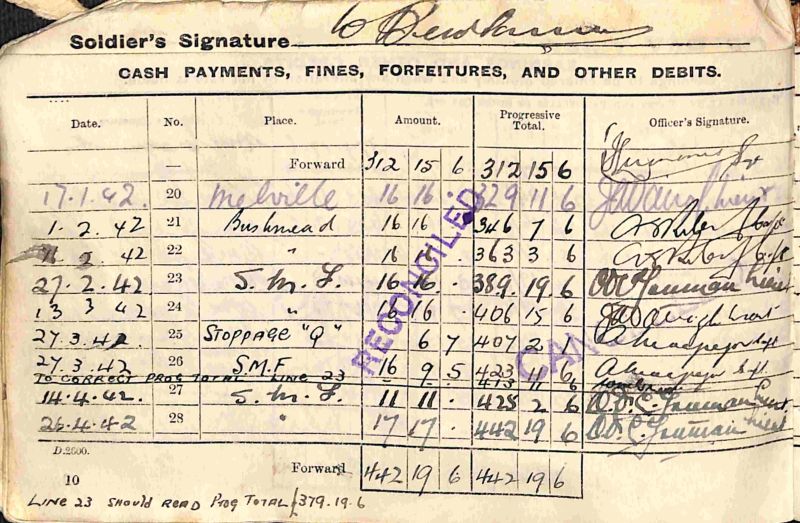 Soldier's Signature
CASH PAYMENTS, FINES, FORFEITURES, AND OTHER DEBITS.
Date. No. Place. Amount. Progressive Total. Officer's Signature.
— Forward 312 15 6 312 15 6
17.1.42. 20 Melville 16 16 . 329 11 6
1.2.42 21 Bushmead 16 16 346 7 6
2 42 22 " 16 16 . 363 3 6
27.2.42 23 S.M.F. 16 16 . 389.19.6
13 3 42 24 " 16 16 . 406 15 6
27.3.42. 25 STOPPAGE "Q" 6 7 407 2 1
27.3.42 26 S.M.F 16 9 5 423 11 6
TO CORRECT PROG TOTAL LINE 23 413 11 6
14.4.42. 27 S.M.F. 11 11 . 425 2 6
26.4.42 28 " 17 17 . 442 19 6
RECONCILED
D.2600.
10 Forward 442 19 6 442 19 6
LINE 23 SHOULD READ PROG TOTAL £379.19.6